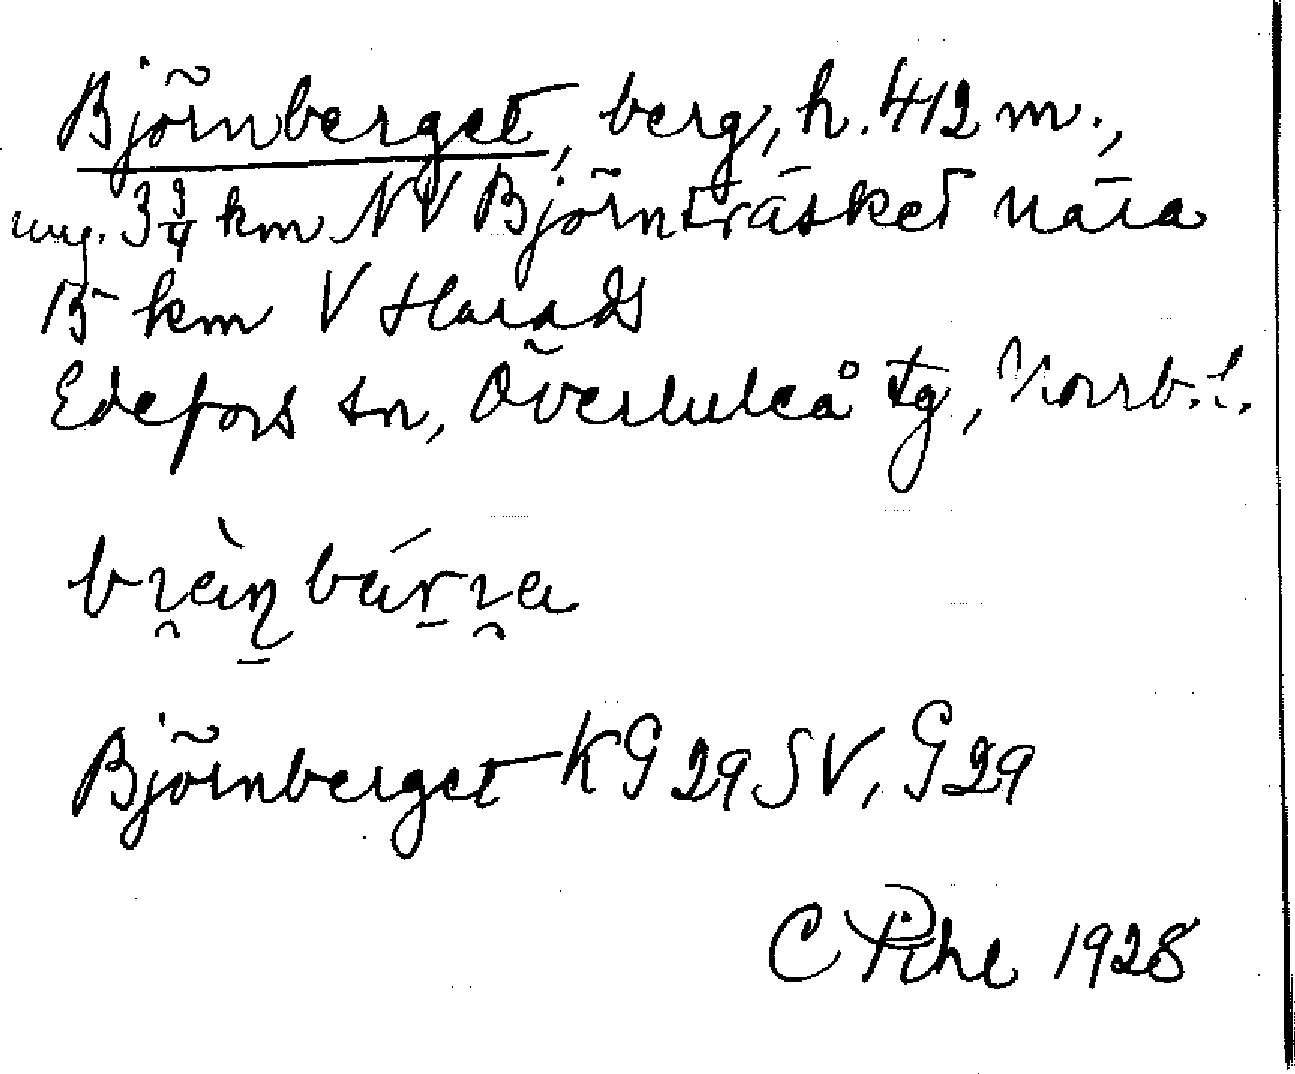 Björnberget, berg, h. 412 m.,
ung. 3 3/4 km NV Björnträsket nära
15 km V Harads
Edefors sn, Överluleå tg, Norrb. l.
Björnberget KG 29 SV, G 29
C Pihl 1928